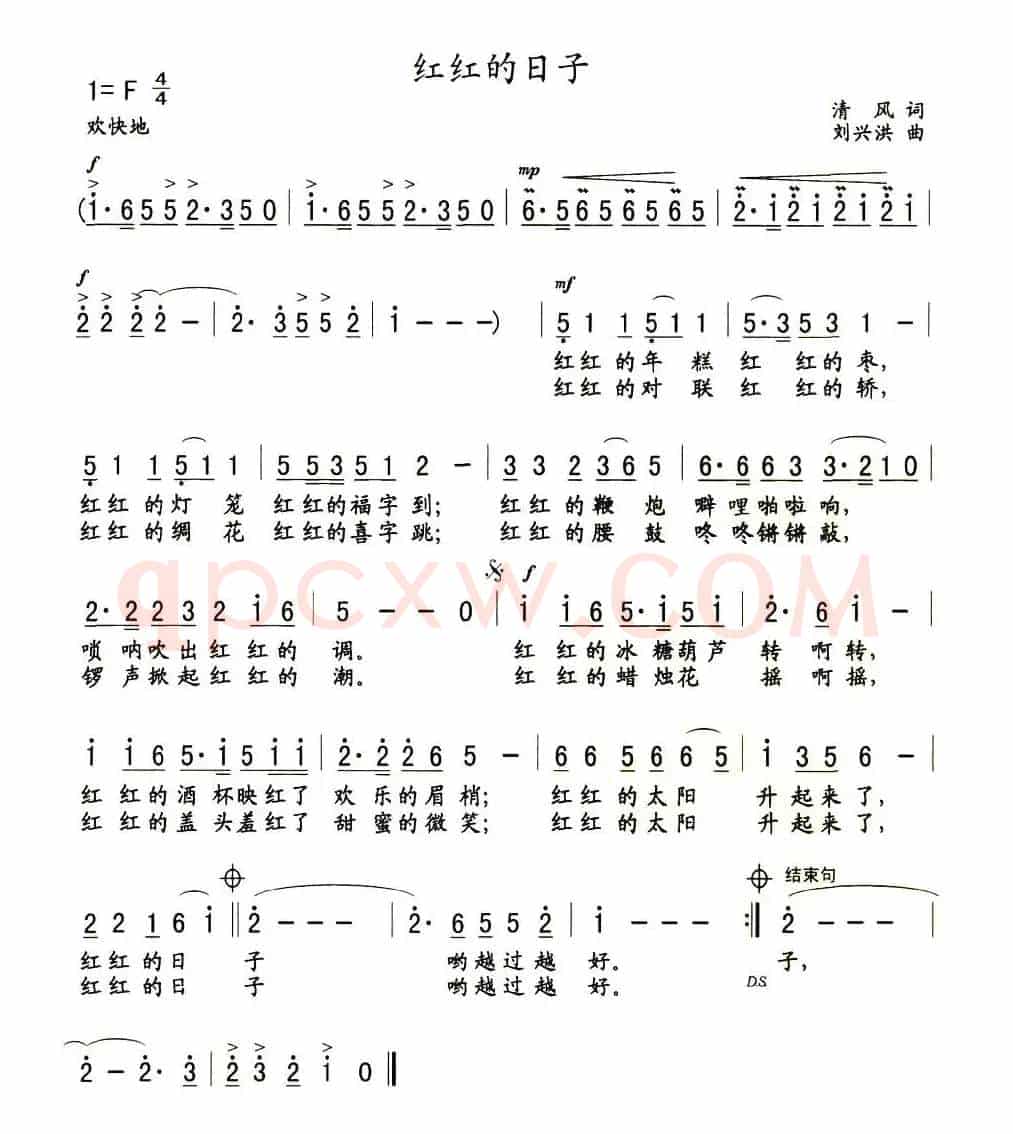 红红的日子
1=F 4/4
清 风 词
欢快地
刘兴洪 曲
f
(i·6 5 5 2·3 5 0 | i·6 5 5 2·3 5 0 | mp 6·5 6 5 6 5 6 5 | 2·i 2 i 2 i 2 i |
f mf
2 2 2 2 - | 2· 3 5 5 2 | i - - -) | 5 1 1 5 1 1 | 5·3 5 3 1 - |
红红的年糕红 红的枣,
红红的对联红 红的轿,
5 1 1 5 1 1 | 5 5 3 5 1 2 - | 3 3 2 3 6 5 | 6·6 6 3 3·2 1 0 |
红红的灯笼 红红的福字到; 红红的鞭炮 噼哩啪啦响,
红红的绸花 红红的喜字跳; 红红的腰鼓 咚咚锵锵敲,
f
2·2 2 3 2 i 6 | 5 - - 0 | i i 6 5·i 5 i | 2· 6 i - |
唢呐吹出红红的 调。 红红的冰糖葫芦 转啊转,
锣声掀起红红的 潮。 红红的蜡烛花 摇啊摇,
i i 6 5·i 5 i i | 2·2 2 6 5 - | 6 6 5 6 6 5 | i 3 5 6 - |
红红的酒杯映红了 欢乐的眉梢; 红红的太阳 升起来了,
红红的盖头羞红了 甜蜜的微笑; 红红的太阳 升起来了,
结束句
2 2 1 6 i || 2 - - - | 2· 6 5 5 2 | i - - - :|| 2 - - - |
红红的日 子 哟越过越 好。 子,
红红的日 子 哟越过越 好。 D.S.
2 - 2· 3 | 2 3 2 i 0 ||
qpcxw.COM